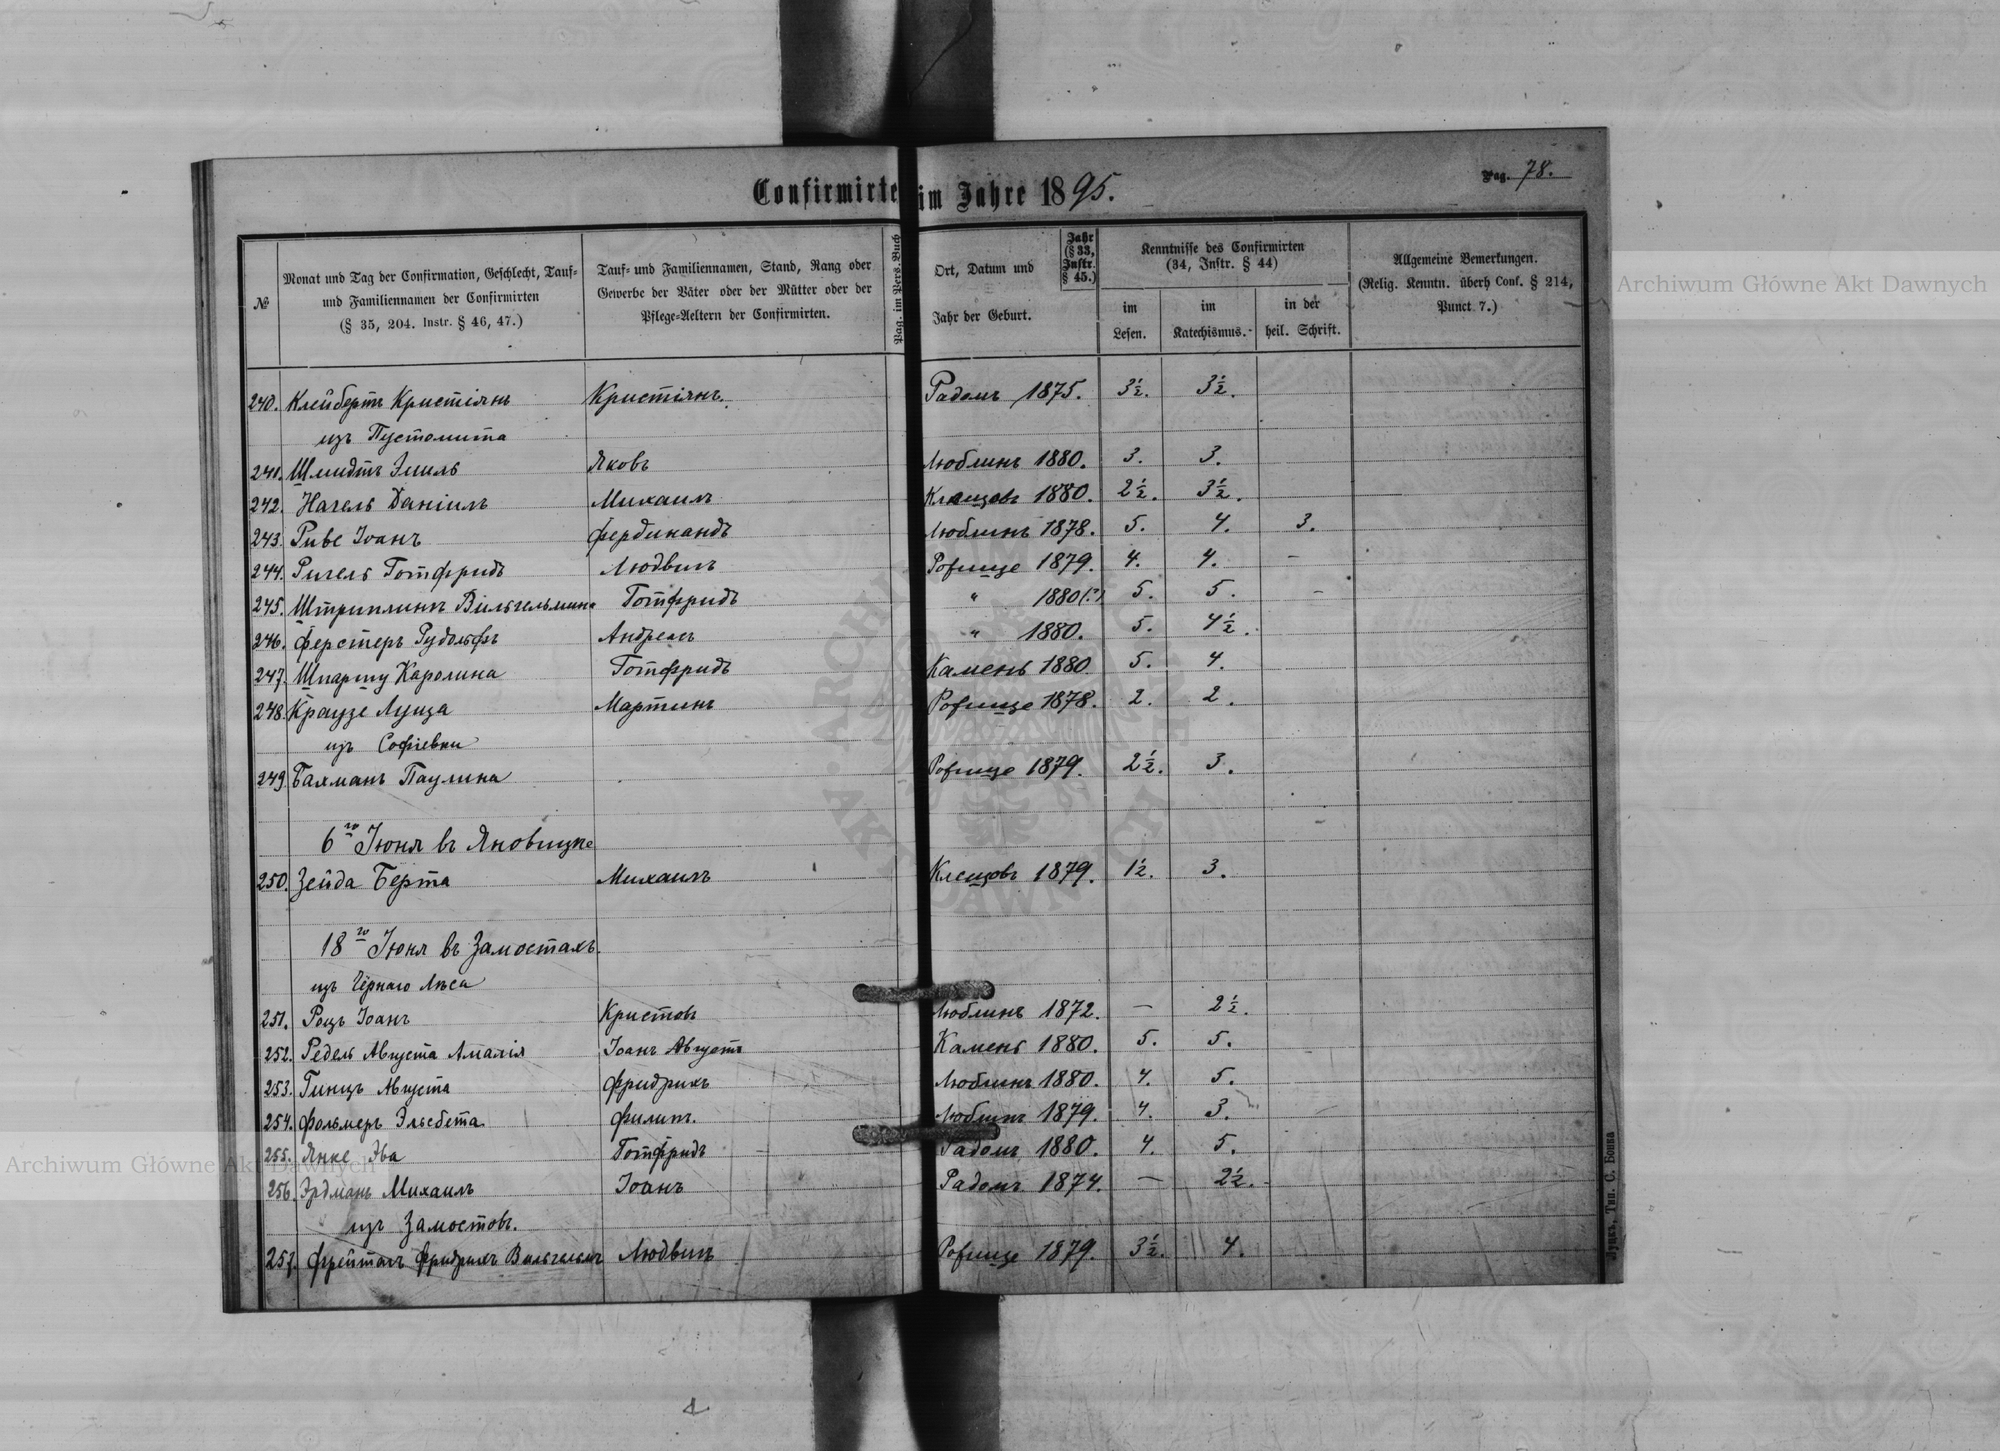 Confirmirte im Jahre 1895.
Pag. 78.
№
Monat und Tag der Confirmation, Geschlecht, Tauf-
und Familiennamen der Confirmirten
(§ 35, 204. Instr. § 46, 47.)
Tauf- und Familiennamen, Stand, Rang oder
Gewerbe der Väter oder der Mütter oder der
Pflege-Aeltern der Confirmirten.
Pag. im Pers. Buch
Ort, Datum und
Jahr der Geburt.
Jahr
(§ 33,
Instr.
§ 45.)
Kenntnisse des Confirmirten
(34, Instr. § 44)
im
Lesen.
im
Katechismus.
in der
heil. Schrift.
Allgemeine Bemerkungen.
(Relig. Kenntn. überh Conf. § 214,
Punct 7.)
240. Клейбертъ Кристіянъ Кристіянъ. Радомъ 1875. 3½. 3½.
изъ Пустомита
241. Шмидтъ Эмиль Яковъ Люблинъ 1880. 3. 3.
242. Нагель Даніилъ Михаилъ Клещовъ 1880. 2½. 3½.
243. Риве Іоанъ Фердинандъ Люблинъ 1878. 5. 4. 3.
244. Ригель Готфридъ Людвигъ Рожище 1879. 4. 4. –
245. Штриплингъ Вильгельмина Готфридъ " 1880(?) 5. 5. –
246. Ферстеръ Рудольфъ Андреасъ " 1880. 5. 4½.
247. Шпаршу Каролина Готфридъ Камень 1880 5. 4.
248. Краузе Луиза Мартинъ Рожище 1878. 2. 2.
изъ Софіевки
249. Бахманъ Паулина Рожище 1879. 2½. 3.
6го Іюня въ Яновицке
250. Зейда Берта Михаилъ Клещовъ 1879. 1½. 3.
18го Іюня въ Замостахъ.
изъ Чёрнаго Лѣса
251. Роцъ Іоанъ Кристовъ Люблинъ 1872. – 2½.
252. Редель Августа Амалія Іоанъ Августъ Камень 1880. 5. 5.
253. Гинцъ Августа Фридрихъ Люблинъ 1880. 4. 5.
254. Фольмеръ Эльсбета Филипъ. Люблинъ 1879. 4. 3.
255. Янке Эва Готфридъ Радомъ 1880. 4. 5.
256. Эрдманъ Михаилъ Іоанъ Радомъ 1874. – 2½.
изъ Замостовъ.
257. Фрейтагъ Фридрихъ Вильгельмъ Людвигъ Рожище 1879. 3½. 4.
Луцкъ, Тип. С. Бонка
Archiwum Główne Akt Dawnych
Archiwum Główne Akt Dawnych